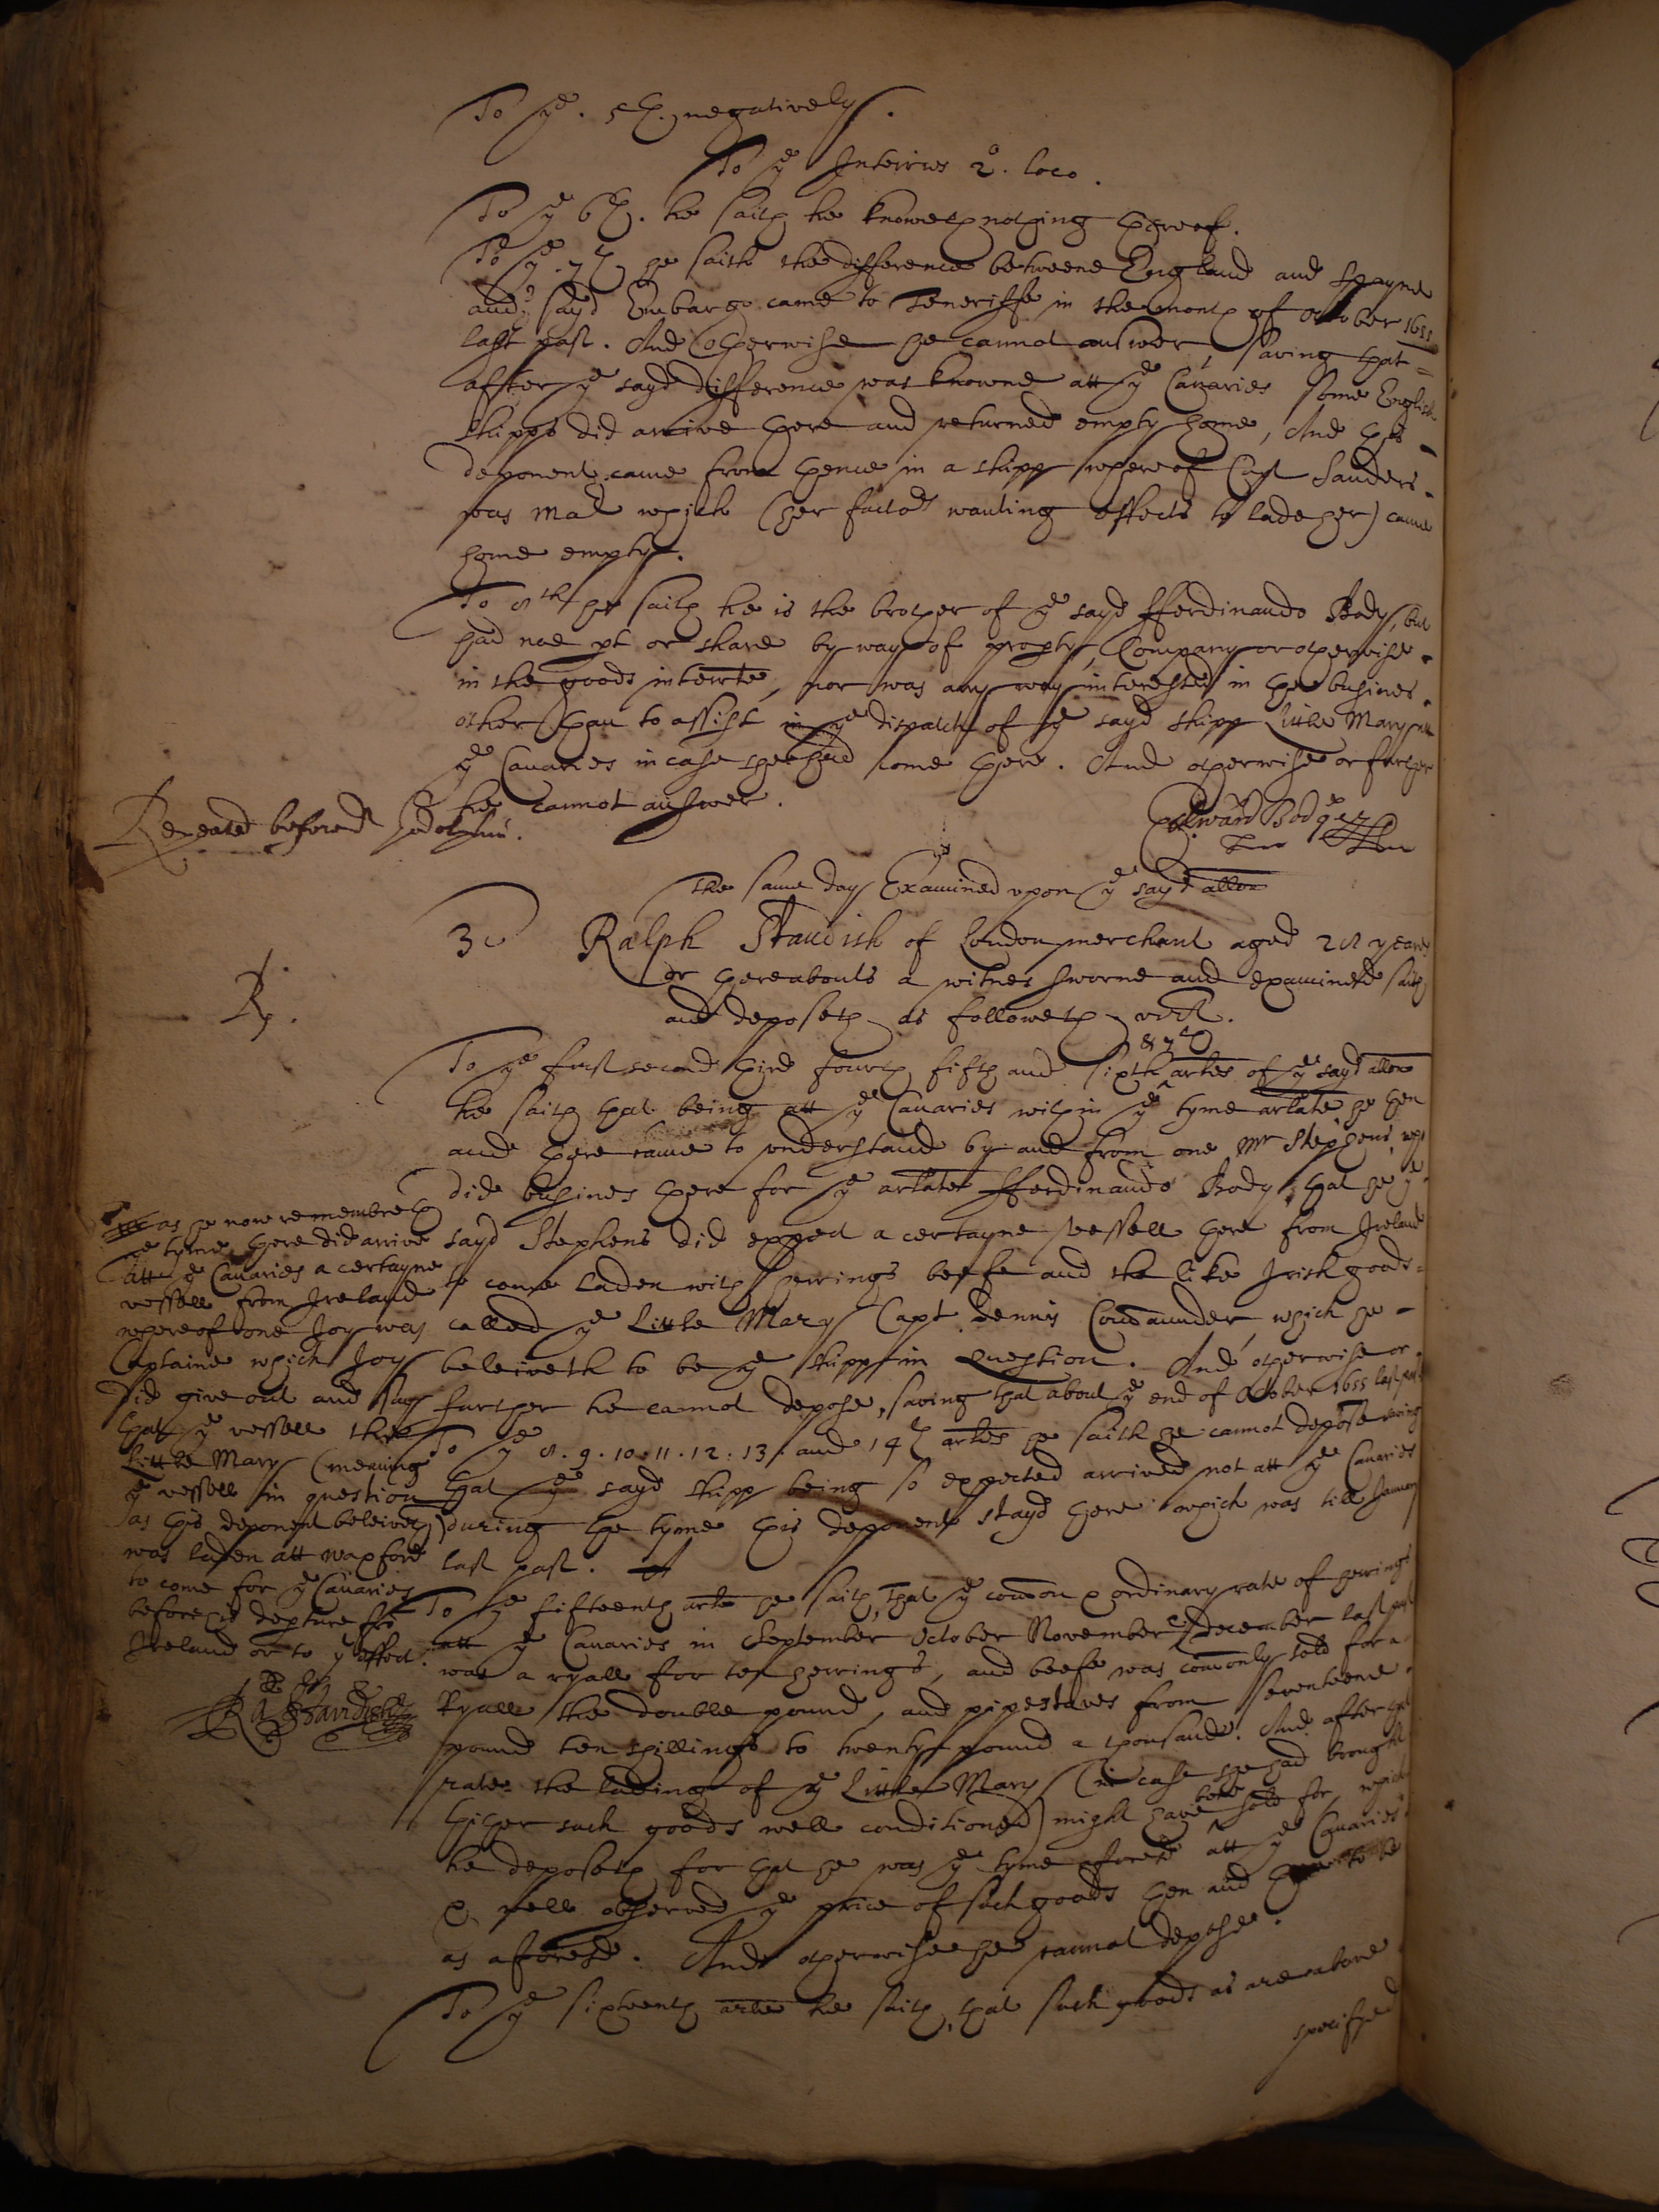 To ye. 5th. negatively.
To ye Interries 2o. loco.
To ye 6th. he saith he knoweth nothing thereof.
To ye 7th he saith the difference betweene England and Spayne
and sayd Embargo came to Teneriffe in the month of October 1655
last past. And otherwise he cannot answer, saving that
after ye sayd difference was knowne att ye Canaries some English
shipps did arrive there and returned empty home, And this
deponent came from thence in a shipp whereof Capt Sanders
was Mar which (her factors wanting effects to lade her) came
home empty.
To 8th he saith he is the brother of ye sayd fferdinando Body, but
had noe pt or share by way of propty, Company or otherwise
in the goods interrte, nor was any way interested in the busines
other than to assist in ye dispatch of ye sayd shipp Little Mary att
ye Canaries in case shee had come there. And otherwise or further
he cannot answer.
Repeated before Godolphin.
Edward Bodye
The same day Examined upon ye sayd allon
3us Ralph Standish of London merchant aged 28 yeares
or thereabouts a witnes sworne and examined saith
and deposeth as followeth vizt.
Rp.
& 7th
To ye first second third fourth fifth and sixth artles of ye sayd allon
he saith that being att ye Canaries within ye tyme arlate he then
and there came to understand by and from one Mr Stephens, who
did busines there for ye arlate fferdinando Body, that he ye
sayd Stephens did expect a certayne vessell there from Ireland
to come laden with herrings beefe and the like Irish goods
called ye Little Mary Capt Dennis Comaunder, which he
beleiveth to be ye shipp in question. And otherwise or
further he cannot depose, saving that about ye end of October 1655 last past
as he now remembreth
ye tyme there did arrive
att ye Canaries a certayne
vessell from Ireland
whereof one Joy was
Captaine which Joy
did give out and say
that ye vessell the
Little Mary (meaning
ye vessell in question
as this deponent beleiveth)
was laden att waxford
to come for ye Canaries
before his depture fro
Ireland or to ye effect.
Ra: Standish
To ye 8. 9. 10. 11. 12: 13. and 14th artles he saith he cannot depose saving
that ye sayd shipp being so expected arrived not att ye Canaries
during the tyme this deponent stayd there which was till January
last past.
To ye fifteenth arle he saith, that ye comon & ordinary rate of herrings
att ye Canaries in September October November & december last past
was a ryall for ten herrings, and beefe was comonly sold for a
Ryall the double pound, and pipestaves from seventeene
pound ten shillings to twenty pound a thousand. And after that
rate the lading of ye Little Mary (in case she had brought
thither such goods well conditioned) might have bene sold for, which
he deposeth for that he was ye tyme aforesd att ye Canaries
& well observed ye price of such goods then and there to be
as aforesd. And otherwise he cannot depose.
To ye sixteenth arle he saith, that such goods as are above
specifyed